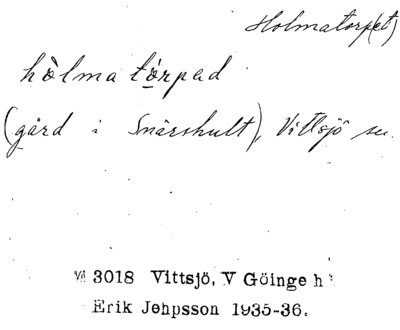 Holmatorp(et)
hòlma tòrpad
(gård i Snärshult), Vittsjö sn.
Vi 3018 Vittsjö, V Göinge h
Erik Jehpsson 1935-36.